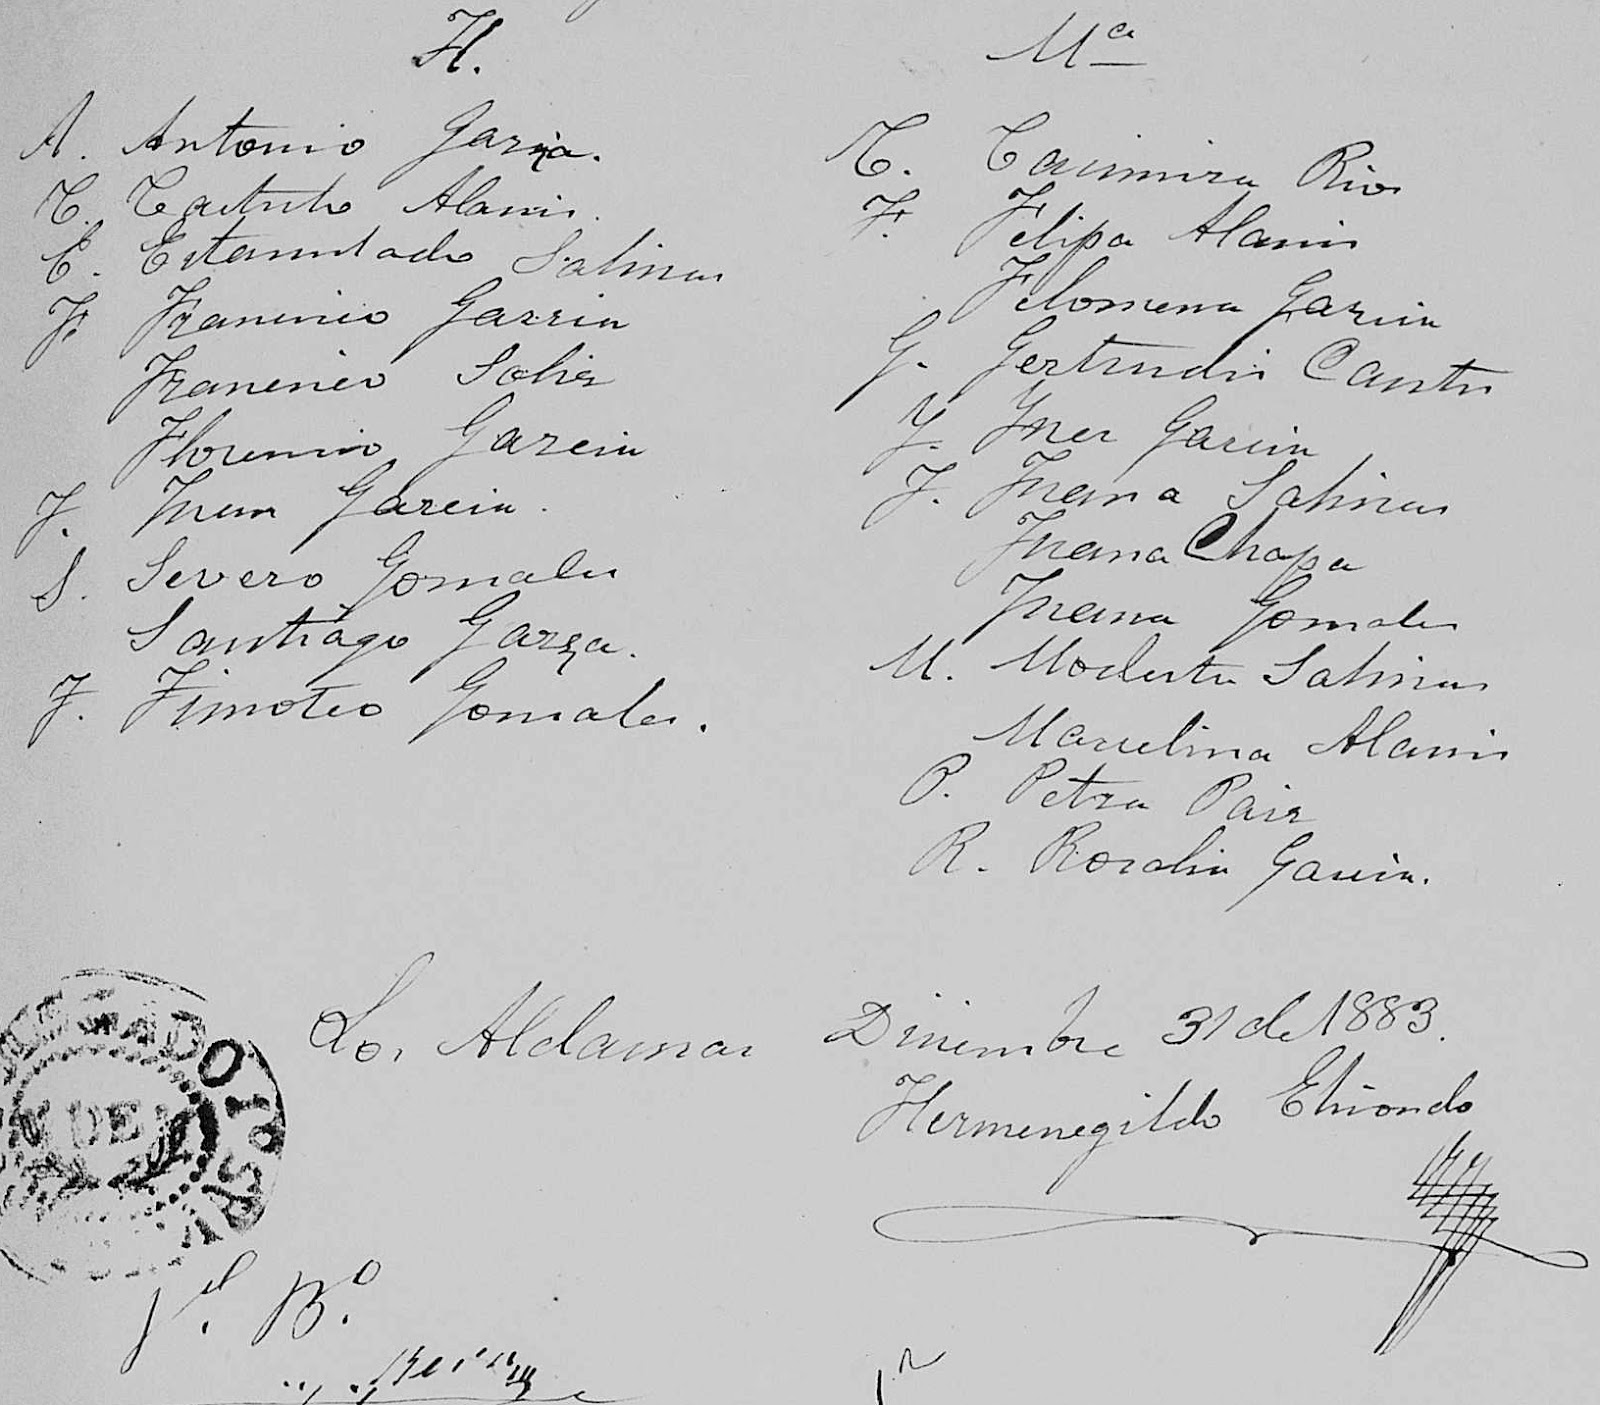 H.
A. Antonio Garza.
C. Castulo Alanis.
E. Estanislado Salinas
F. Francisco Garcia
Francisco Solis
Florencio Garcia
J. Juan Garcia.
S. Severo Gonzales
Santiago Garza.
T. Timoteo Gonzales.
Ma
C. Casimira Rios
F. Felipa Alanis
Felomena Garcia
G. Gertrudis Cantu
Y. Ynes Garcia
J. Juana Salinas
Juana Chapa
Juana Gonzales
M. Modesta Salinas
Marcelina Alanis
P. Petra Pais
R. Rosalia Garcia.
Los Aldamas Diciembre 31 de 1883.
Hermenegildo Elisondo
DE